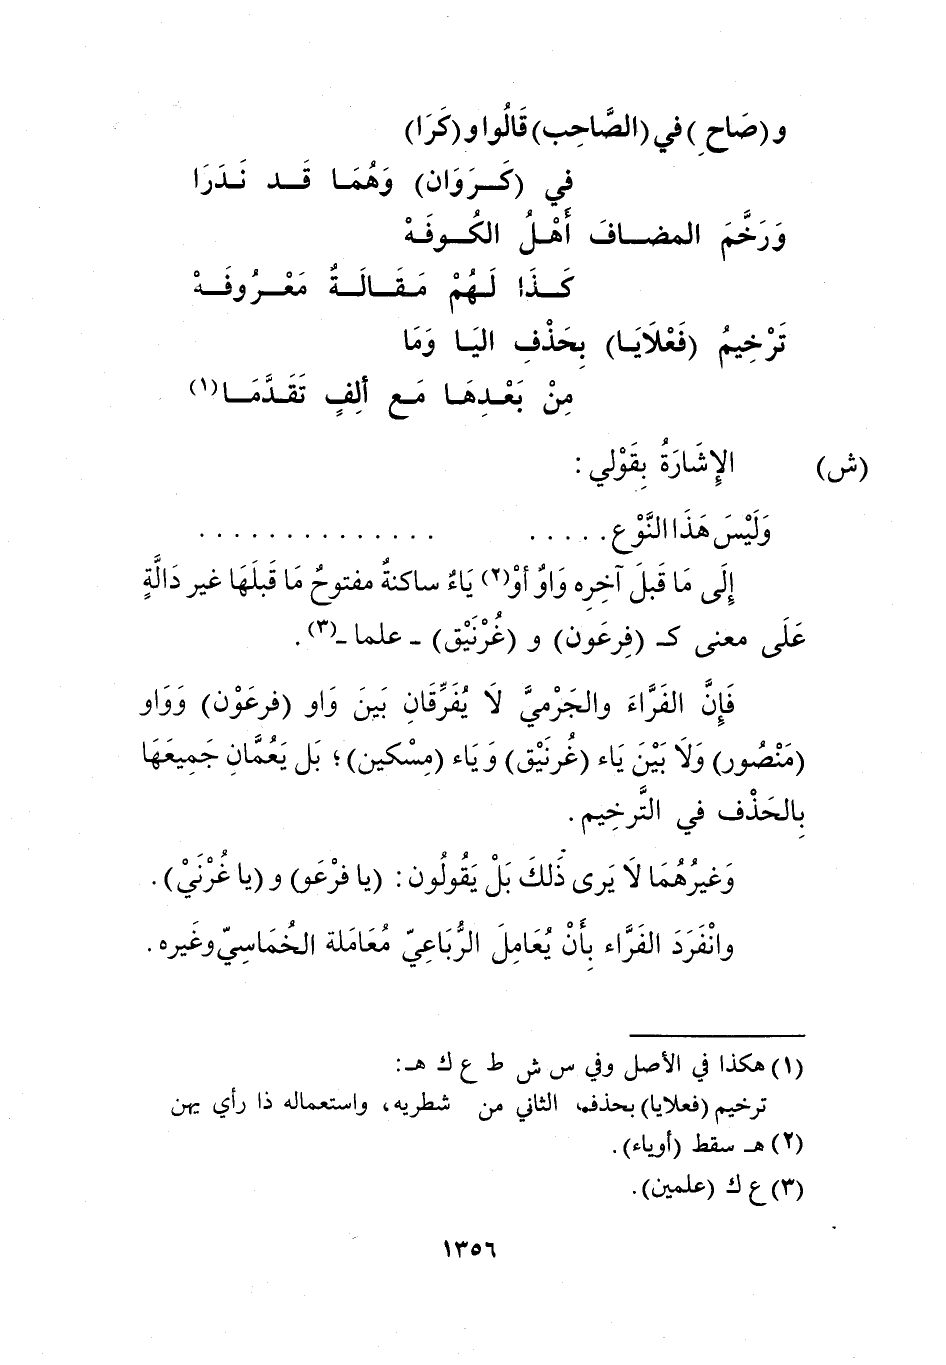 و (صَاحِ) في (الصَّاحِب) قَالُوا و (كَرَا)
في (كَـرَوَان) وَهُمَـا قَـد نَـدَرَا
وَرَخَّمَ المضـافَ أَهْـلُ الكُـوفَـهْ
كَـذَا لَـهُمْ مَـقَـالَـةٌ مَعْـرُوفَـهْ
تَرْخِيمُ (فَعْلَايَـا) بِحَذْفِ اليَـا وَمَا
مِنْ بَعْـدِهَـا مَـع ألِفٍ تَقَـدَّمَـا(١)
(ش) الإِشَارَةُ بِقَوْلي :
وَلَيْسَ هَذَا النَّوْع . . . . . . . . . . . . . . . . . . .
إِلَى مَا قَبلَ آخِرِه وَاوٌ أوْ(٢) يَاءٌ ساكنةٌ مفتوحٌ مَا قَبلَهَا غير دَالَّةٍ
عَلَى معنى كـ (فِرعَون) و (غُرْنَيْق) ـ علما ـ(٣).
فَإِنَّ الفَرَّاءَ والجَرْميَّ لَا يُفَرِّقَانِ بَينَ وَاو (فرعَوْن) وَوَاو
(مَنْصُور) وَلَا بَيْنَ يَاء (غُرنَيْق) وَيَاء (مِسْكين)؛ بَل يَعُمَّانِ جَمِيعَهَا
بِالحَذْف في التَّرخِيم .
وَغيرُهُمَا لَا يَرى ذَلكَ بَلْ يَقُولُون : (يا فرْعَو) و (يا غُرْنَيْ) .
وانْفَرَدَ الفَرَّاء بِأَنْ يُعَامِلَ الرُّبَاعِيّ مُعَاملة الخُمَاسِيّ وغَيره .
(١) هكذا في الأصل وفي س ش ط ع ك هـ :
ترخيم (فعلايا) بحذف الثاني من شطريه، واستعماله ذا رأي يهن
(٢) هـ سقط (أوياء) .
(٣) ع ك (علمين) .
١٣٥٦